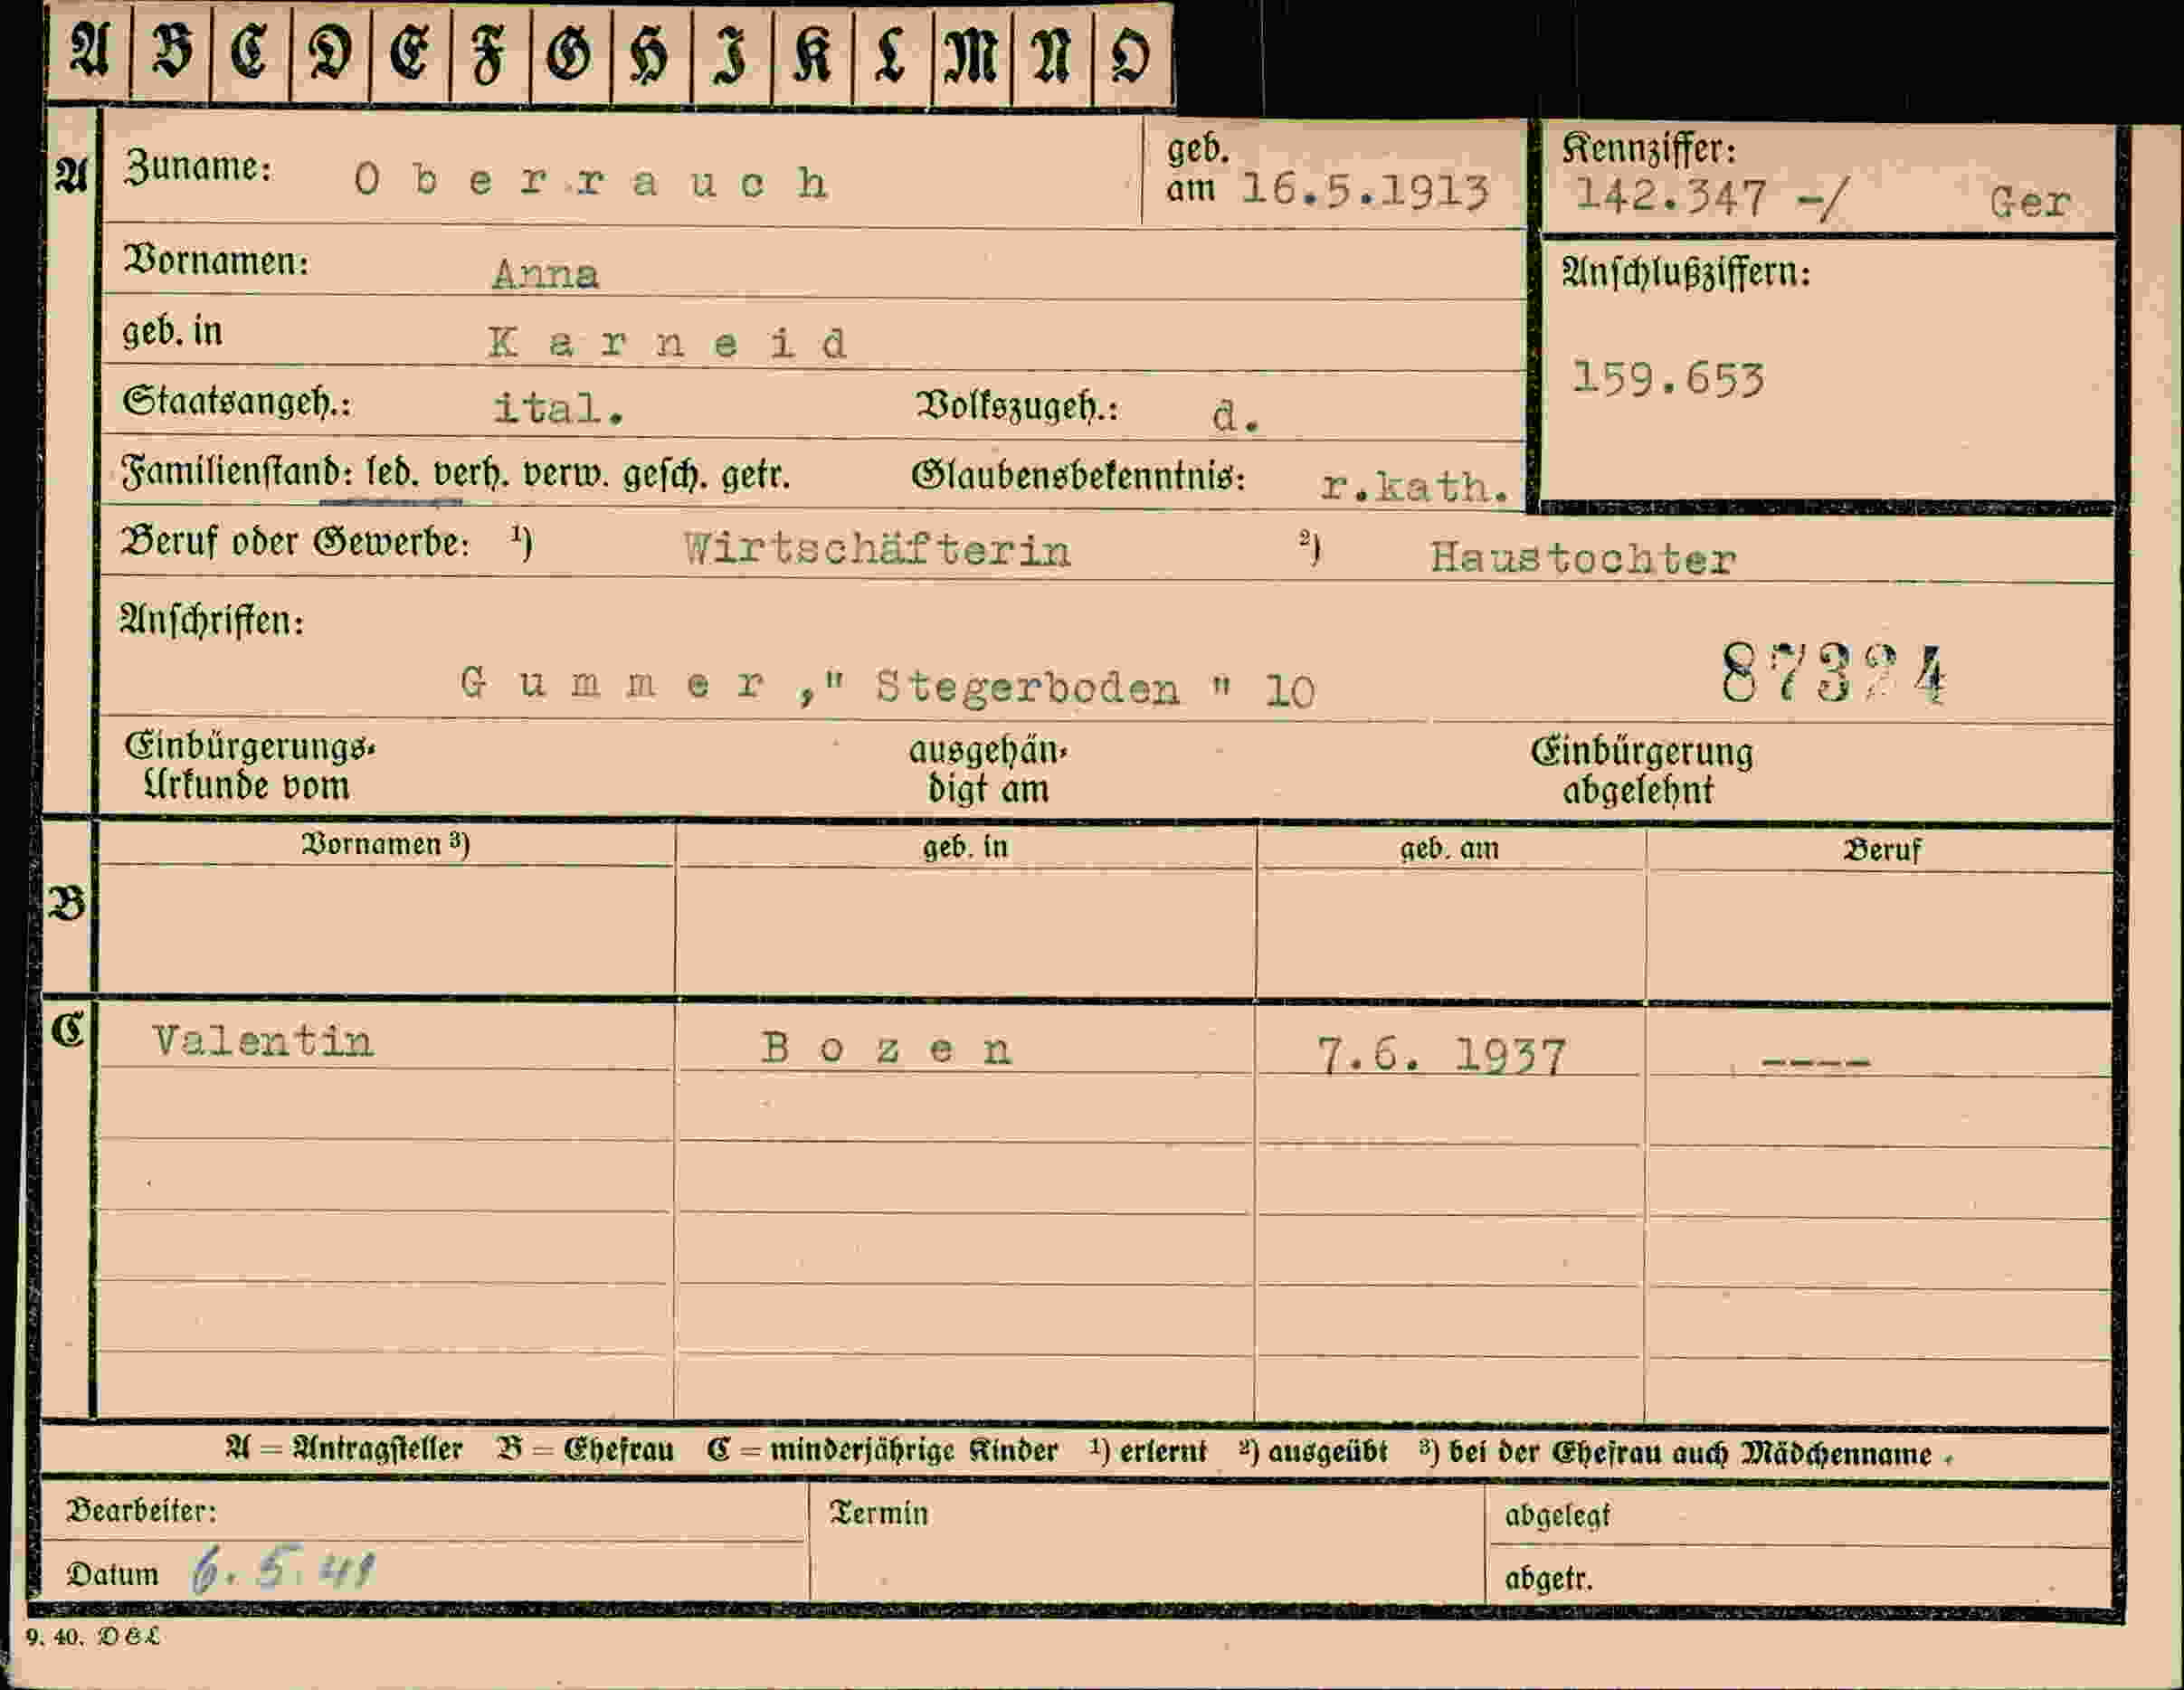 A B C D E F G H I K L M N O
A Zuname: Oberrauch geb. am 16.5.1913 Kennziffer: 142.347 -/ Ger
Vornamen: Anna Anschlußziffern:
geb. in Karneid
159.653
Staatsangeh.: ital. Volkszugeh.: d.
Familienstand: led. verh. verw. gesch. getr. Glaubensbekenntnis: r.kath.
Beruf oder Gewerbe: 1) Wirtschäfterin 2) Haustochter
Anschriften:
Gummer," Stegerboden " 10 87324
Einbürgerungs- ausgehän- Einbürgerung
Urkunde vom digt am abgelehnt
Vornamen 3) geb. in geb. am Beruf
B
C Valentin Bozen 7.6. 1937 ----
A = Antragsteller B = Ehefrau C = minderjährige Kinder 1) erlernt 2) ausgeübt 3) bei der Ehefrau auch Mädchenname.
Bearbeiter: Termin abgelegt
Datum 6.5.41 abgetr.
9. 40. D&L